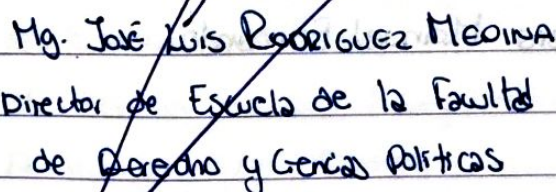 Mg. José Luis Rodriguez Medina
Director de Escuela de la Facultad
de Derecho y Ciencias Politicas